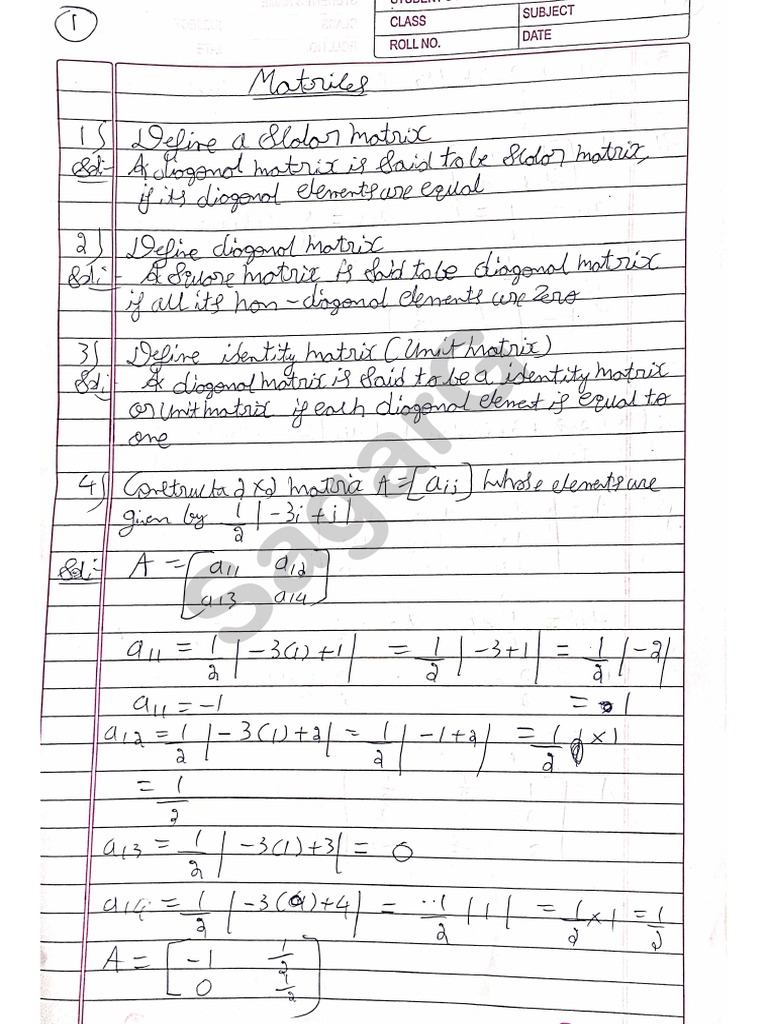 1
STUDENT'S
CLASS
SUBJECT
ROLL NO.
DATE
Matriles
1) Define a Slalar matrix
Sol:- A diagonal matrix is said to be Scalar matrix,
if its diagonal elements are equal
2) Define diagonal matrix
Sol:- A Square matrix is said to be diagonal matrix
if all its non-diagonal elements are zero
3) Define identity matrix (Unit matrix)
Sol:- A diagonal matrix is said to be a identity matrix
or unit matrix if each diagonal element is equal to
one
4) Construct a 2x2 matrix A = [aij] whose elements are
given by 1/2 |-3i + j|
Sol:- A = [a11 a12
a13 a14]
a11 = 1/2 |-3(1)+1| = 1/2 |-3+1| = 1/2 |-2|
a11 = -1 = 1
a12 = 1/2 |-3(1)+2| = 1/2 |-1+2| = 1/2 x 1
= 1/2
a13 = 1/2 |-3(1)+3| = 0
a14 = 1/2 |-3(1)+4| = 1/2 |1| = 1/2 x 1 = 1/2
A = [-1 1/2
0 1/2]
Sagar G